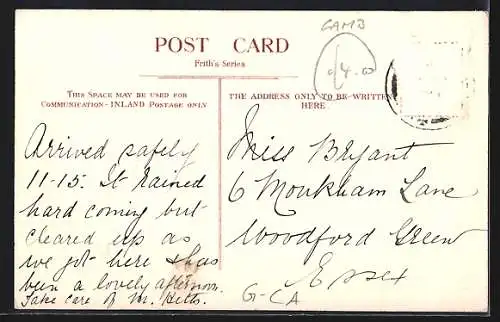 CAMB
£4.00
POST CARD
Frith's Series
THIS SPACE MAY BE USED FOR
COMMUNICATION - INLAND POSTAGE ONLY
THE ADDRESS ONLY TO BE WRITTEN
HERE
Arrived safely
11-15. It rained
hard coming but
cleared up as
we got here & has
been a lovely afternoon.
Take care of M.
Miss Bryant
6 Monkham Lane
Woodford Green
Essex
G-CA